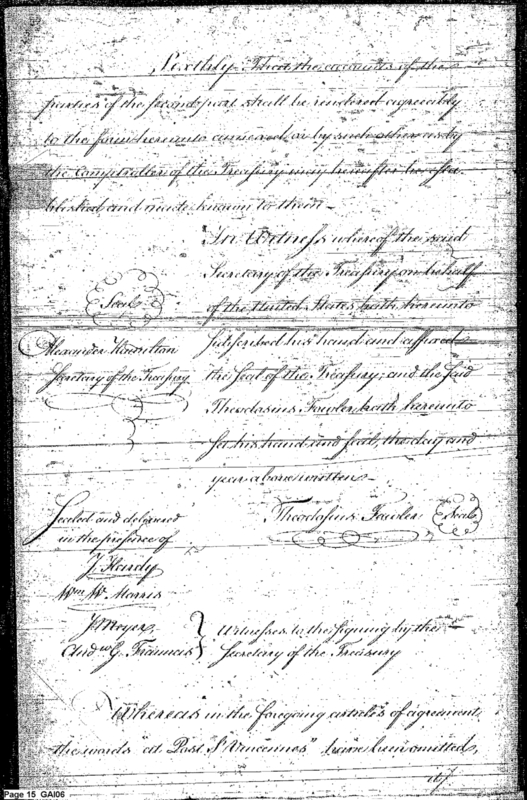 Sixthly That the accounts of the
parties of the second part shall be rendered agreeably
to the form hereunto annexed or by such other as by
the Comptroller of the Treasury may hereafter be esta-
blished and made known to them—
In Witness whereof the said
Secretary of the Treasury on behalf
of the United States hath hereunto
Seal
subscribed his hand and affixed
Alexander Hamilton
the Seal of the Treasury; and the said
Secretary of the Treasury
Theodosius Fowler hath hereunto
set his hand and seal, the day and
year above written—
Theodosius Fowler Seal
Sealed and delivered
in the presence of
J. Hardy
Wm W. Morris
J Meyer
Witnesses to the signing by the
Andw G.
Secretary of the Treasury
Whereas in the foregoing articles of agreement
the words "at Post St Vincennes" have been omitted,
Page 15 GAI06